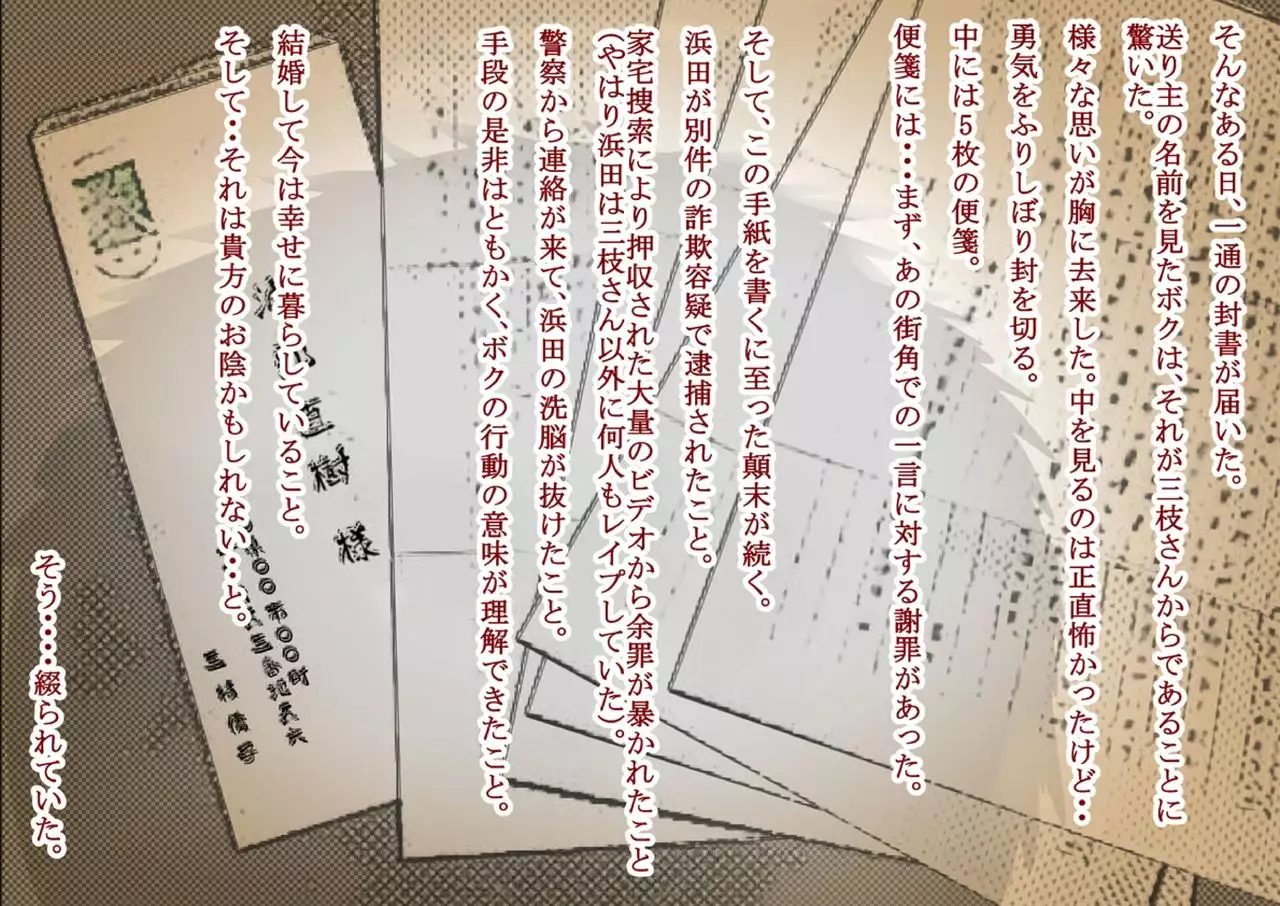 そんなある日、一通の封書が届いた。
送り主の名前を見たボクは、それが三枝さんからであることに
驚いた。
様々な思いが胸に去来した。中を見るのは正直怖かったけど・・
勇気をふりしぼり封を切る。
中には５枚の便箋。
便箋には・・・まず、あの街角での一言に対する謝罪があった。
そして、この手紙を書くに至った顛末が続く。
浜田が別件の詐欺容疑で逮捕されたこと。
家宅捜索により押収された大量のビデオから余罪が暴かれたこと
（やはり浜田は三枝さん以外に何人もレイプしていた）。
警察から連絡が来て、浜田の洗脳が抜けたこと。
手段の是非はともかく、ボクの行動の意味が理解できたこと。
結婚して今は幸せに暮らしていること。
そして・・それは貴方のお陰かもしれない・・・と。
そう・・・・綴られていた。
直樹様